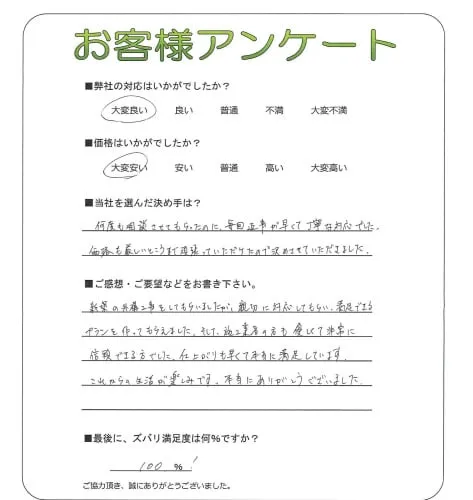 お客様アンケート
■弊社の対応はいかがでしたか?
大変良い 良い 普通 不満 大変不満
■価格はいかがでしたか?
大変安い 安い 普通 高い 大変高い
■当社を選んだ決め手は?
何度も相談させてもらったのに、毎回返事が早くて丁寧な対応でした。
価格も厳しいところまで頑張っていただけたので決めさせていただきました。
■ご感想・ご要望などをお書き下さい。
新築の外構工事をしてもらいましたが、親切に対応してもらい、満足できる
プランを作ってもらえました。そして、施工業者の方も優しくて非常に
信頼できる方でした。仕上がりも早くて本当に満足しています。
これからの生活が楽しみです。本当にありがとうございました。
■最後に、ズバリ満足度は何%ですか?
100 %!
ご協力頂き、誠にありがとうございました。